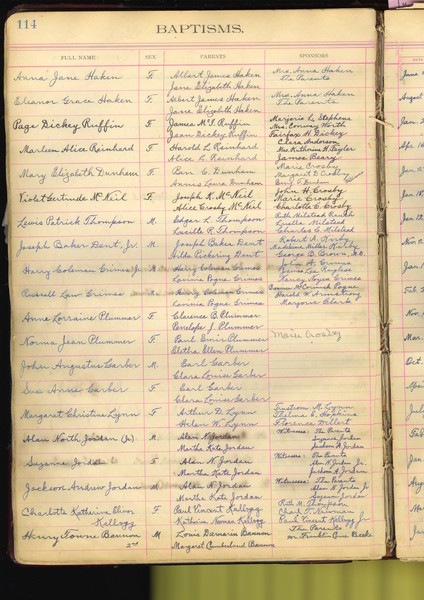 114
BAPTISMS.
FULL NAME SEX PARENTS SPONSORS
Anna Jane Haken F. Albert James Haken Mrs. Anna Haken
Jane Elizabeth Haken The Parents
Eleanor Grace Haken F. Albert James Haken Mrs. Anna Haken
Jane Elizabeth Haken The Parents
Page Dickey Ruffin F James McI. Ruffin Marjorie L. Stephens
Mrs. Conway North
Jean Dickey Ruffin Fairfax H. Dickey
Marleen Alice Reinhard F Harold L. Reinhard Clara Anderson
Mrs. Katherine H. Taylor
Alice L. Reinhard James Beary
Mary Elizabeth Dunheen F. Ben C. Dunheen Marie Crosby
Margaret D. Crosby
Annis Laura Dunheen
Violet Gertrude McNeil F. Joseph K. McNeil John H. Crosby
Marie Crosby
Alice Crosby McNeil Charlotte C. Crosby
Lewis Patrick Thompson M. Edgar L. Thompson Ruth Milstead
Luella Milstead
Lucille R. Thompson Charles C. Milstead
Joseph Baker Dent, Jr. M. Joseph Baker Dent Robert A. Kirby
Madeline Miller Kirby
Hilda Pickering Dent George B. Brown, M.D.
Harry Coleman Grimes Jr. M Harry Coleman Grimes John A. Grimes
Lavinia Pogue Grimes Nancy Noyes Grimes
Russell Law Grimes M Harry Coleman Grimes McCormick Pogue
Harold W. Armstrong
Lavinia Pogue Grimes Marjorie Clark
Anne Lorraine Plummer F Clarence B. Plummer
Penelope J. Plummer
Norma Jean Plummer F. Paul Plummer Marie Crosby
Ellen Plummer
John Augustus Garber M Earl Garber
Clara Louise Garber
Sue Anne Garber F Earl Garber
Clara Louise Garber
Margaret Christine Lynn F Arthur D. Lynn Tristram M. Lynn
Thelma E. Hopkins
Helen W. Lynn Florence Dillert
Alan North Jordan (Jr.) M Alan N. Jordan Witnesses: The Parents
Suzanne Jordan
Martha Kate Jordan Judson H. Jordan
Suzanne Jordan F. Alan N. Jordan Witnesses: The Parents
Alan N. Jordan Jr.
Martha Kate Jordan Judson H. Jordan
Jackson Andrew Jordan M Alan N. Jordan Witnesses: The Parents
Alan N. Jordan Jr
Martha Kate Jordan Suzanne Jordan
Charlotte Katherine F Paul Vincent Kellogg Ruth M. Thompson
Chas. T. Newman
Kellogg Katherine Newman Kellogg Paul Vincent Kellogg Jr
Henry Towne Bannon M Louis Demarin Bannon The Parents
2nd Margaret Cumberland Bannon